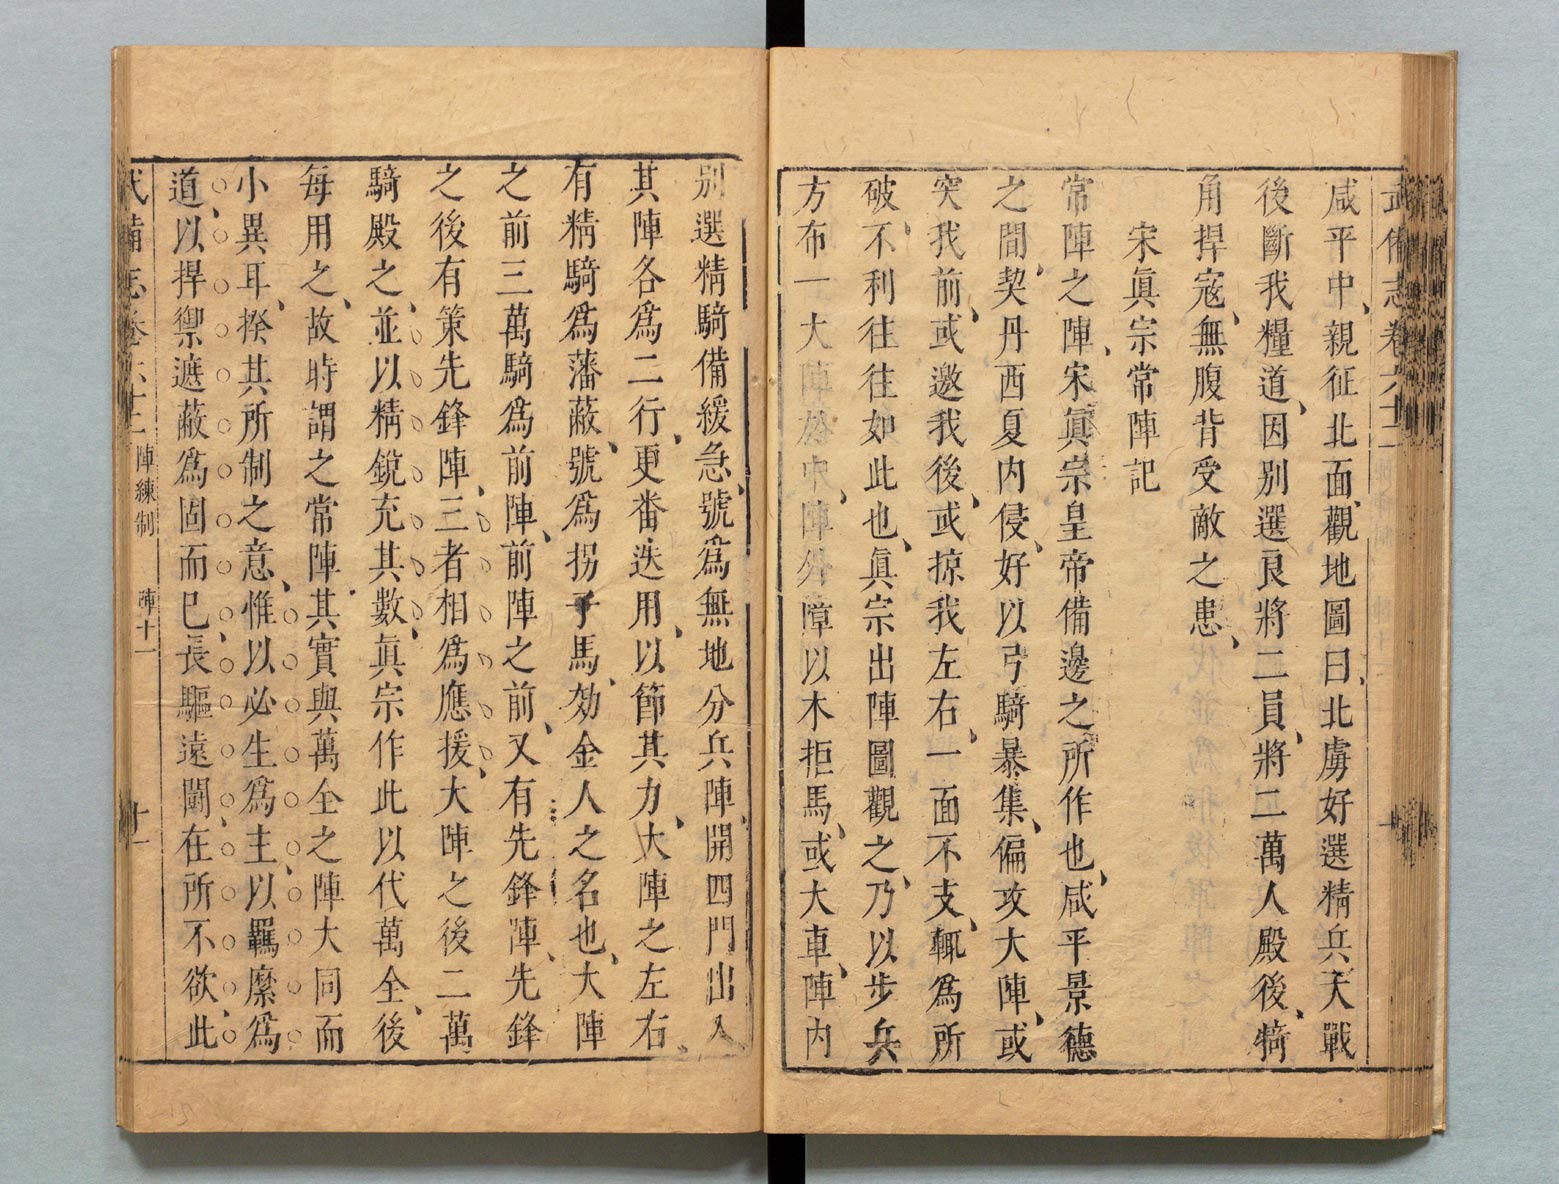 武備志卷六十二
咸平中親征北面觀地圖曰北虜好選精兵天戰
後斷我糧道因别選良將二員將二萬人殿後犄
角捍寇無腹背受敵之患
宋眞宗常陣記
常陣之陣宋眞宗皇帝備邊之所作也咸平景德
之間契丹西夏内侵好以弓騎暴集偏攻大陣或
突我前或邀我後或掠我左右一面不支輒爲所
破不利往往如此也眞宗出陣圖觀之乃以步兵
方布一大陣於中陣外障以木拒馬或大車陣内
别選精騎備緩急號爲無地分兵陣開四門出入
其陣各爲二行更番迭用以節其力大陣之左右
有精騎爲藩蔽號爲拐子馬効金人之名也大陣
之前三萬騎爲前陣前陣之前又有先鋒陣先鋒
之後有策先鋒陣三者相爲應援大陣之後二萬
騎殿之並以精銳充其數眞宗作此以代萬全後
每用之故時謂之常陣其實與萬全之陣大同而
小異耳揆其所制之意惟以必生爲主以羈縻爲
道以捍禦遮蔽爲固而已長驅遠鬬在所不欲此
武備志卷六十二 陣練制 陣十一 十一